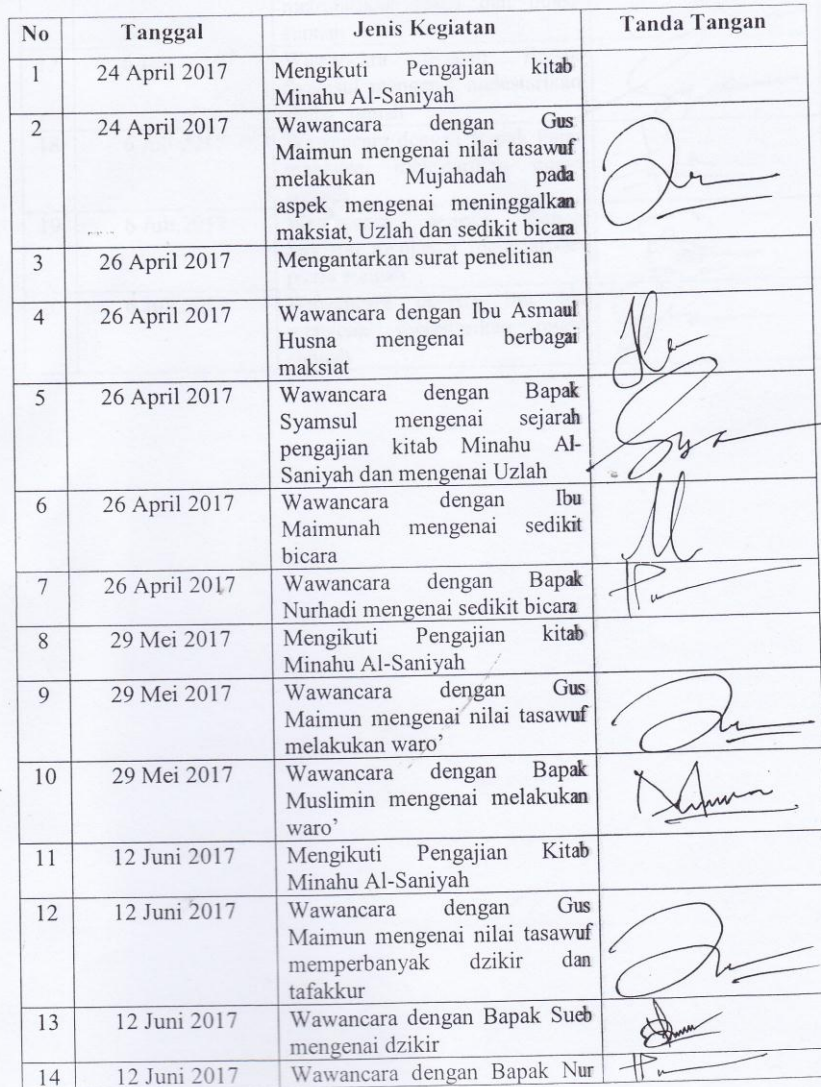 No Tanggal Jenis Kegiatan Tanda Tangan
1 24 April 2017 Mengikuti Pengajian kitab
Minahu Al-Saniyah
2 24 April 2017 Wawancara dengan Gus
Maimun mengenai nilai tasawuf
melakukan Mujahadah pada
aspek mengenai meninggalkan
maksiat, Uzlah dan sedikit bicara
3 26 April 2017 Mengantarkan surat penelitian
4 26 April 2017 Wawancara dengan Ibu Asmaul
Husna mengenai berbagai
maksiat
5 26 April 2017 Wawancara dengan Bapak
Syamsul mengenai sejarah
pengajian kitab Minahu Al-
Saniyah dan mengenai Uzlah
6 26 April 2017 Wawancara dengan Ibu
Maimunah mengenai sedikit
bicara
7 26 April 2017 Wawancara dengan Bapak
Nurhadi mengenai sedikit bicara
8 29 Mei 2017 Mengikuti Pengajian kitab
Minahu Al-Saniyah
9 29 Mei 2017 Wawancara dengan Gus
Maimun mengenai nilai tasawuf
melakukan waro’
10 29 Mei 2017 Wawancara dengan Bapak
Muslimin mengenai melakukan
waro’
11 12 Juni 2017 Mengikuti Pengajian Kitab
Minahu Al-Saniyah
12 12 Juni 2017 Wawancara dengan Gus
Maimun mengenai nilai tasawuf
memperbanyak dzikir dan
tafakkur
13 12 Juni 2017 Wawancara dengan Bapak Sueb
mengenai dzikir
14 12 Juni 2017 Wawancara dengan Bapak Nur